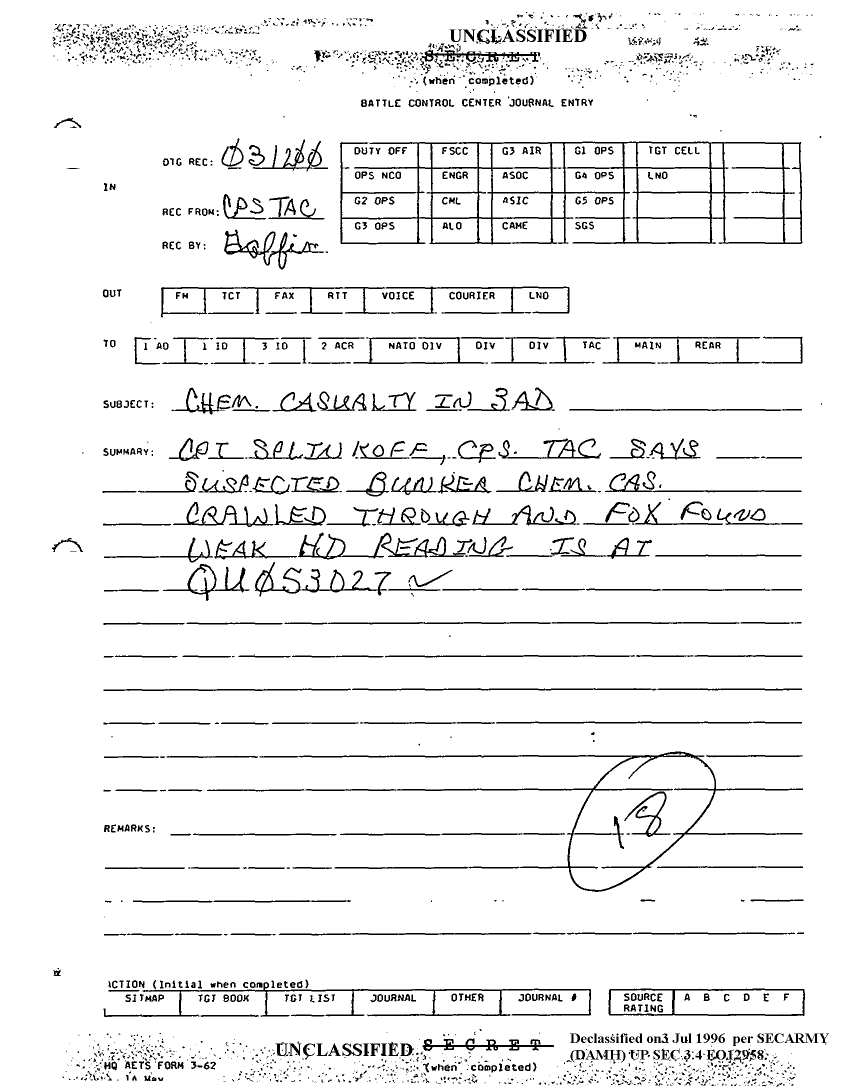 UNCLASSIFIED
S E C R E T
(when completed)
BATTLE CONTROL CENTER JOURNAL ENTRY
IN
DTG REC: Ø312ØØ
REC FROM: CPS TAC
REC BY:
DUTY OFF FSCC G3 AIR G1 OPS TGT CELL
OPS NCO ENGR ASOC G4 OPS LNO
G2 OPS CML ASIC G5 OPS
G3 OPS ALO CAME SGS
OUT FM TCT FAX RTT VOICE COURIER LNO
TO 1 AD 1 ID 3 ID 2 ACR NATO DIV DIV DIV TAC MAIN REAR
SUBJECT: CHEM. CASUALTY IN 3AD
SUMMARY: CPT SPLINKOFF, CPS. TAC SAYS
SUSPECTED BUNKER CHEM. CAS.
CRAWLED THROUGH AND FOX FOUND
WEAK HD READING IS AT
QUØ53027 ✓
18
REMARKS:
ACTION (Initial when completed)
SITMAP TGT BOOK TGT LIST JOURNAL OTHER JOURNAL # SOURCE RATING A B C D E F
UNCLASSIFIED S E C R E T
(when completed)
Declassified on3 Jul 1996 per SECARMY
(DAMH) UP SEC 3.4 EO12958.
HQ AETS FORM 3-62